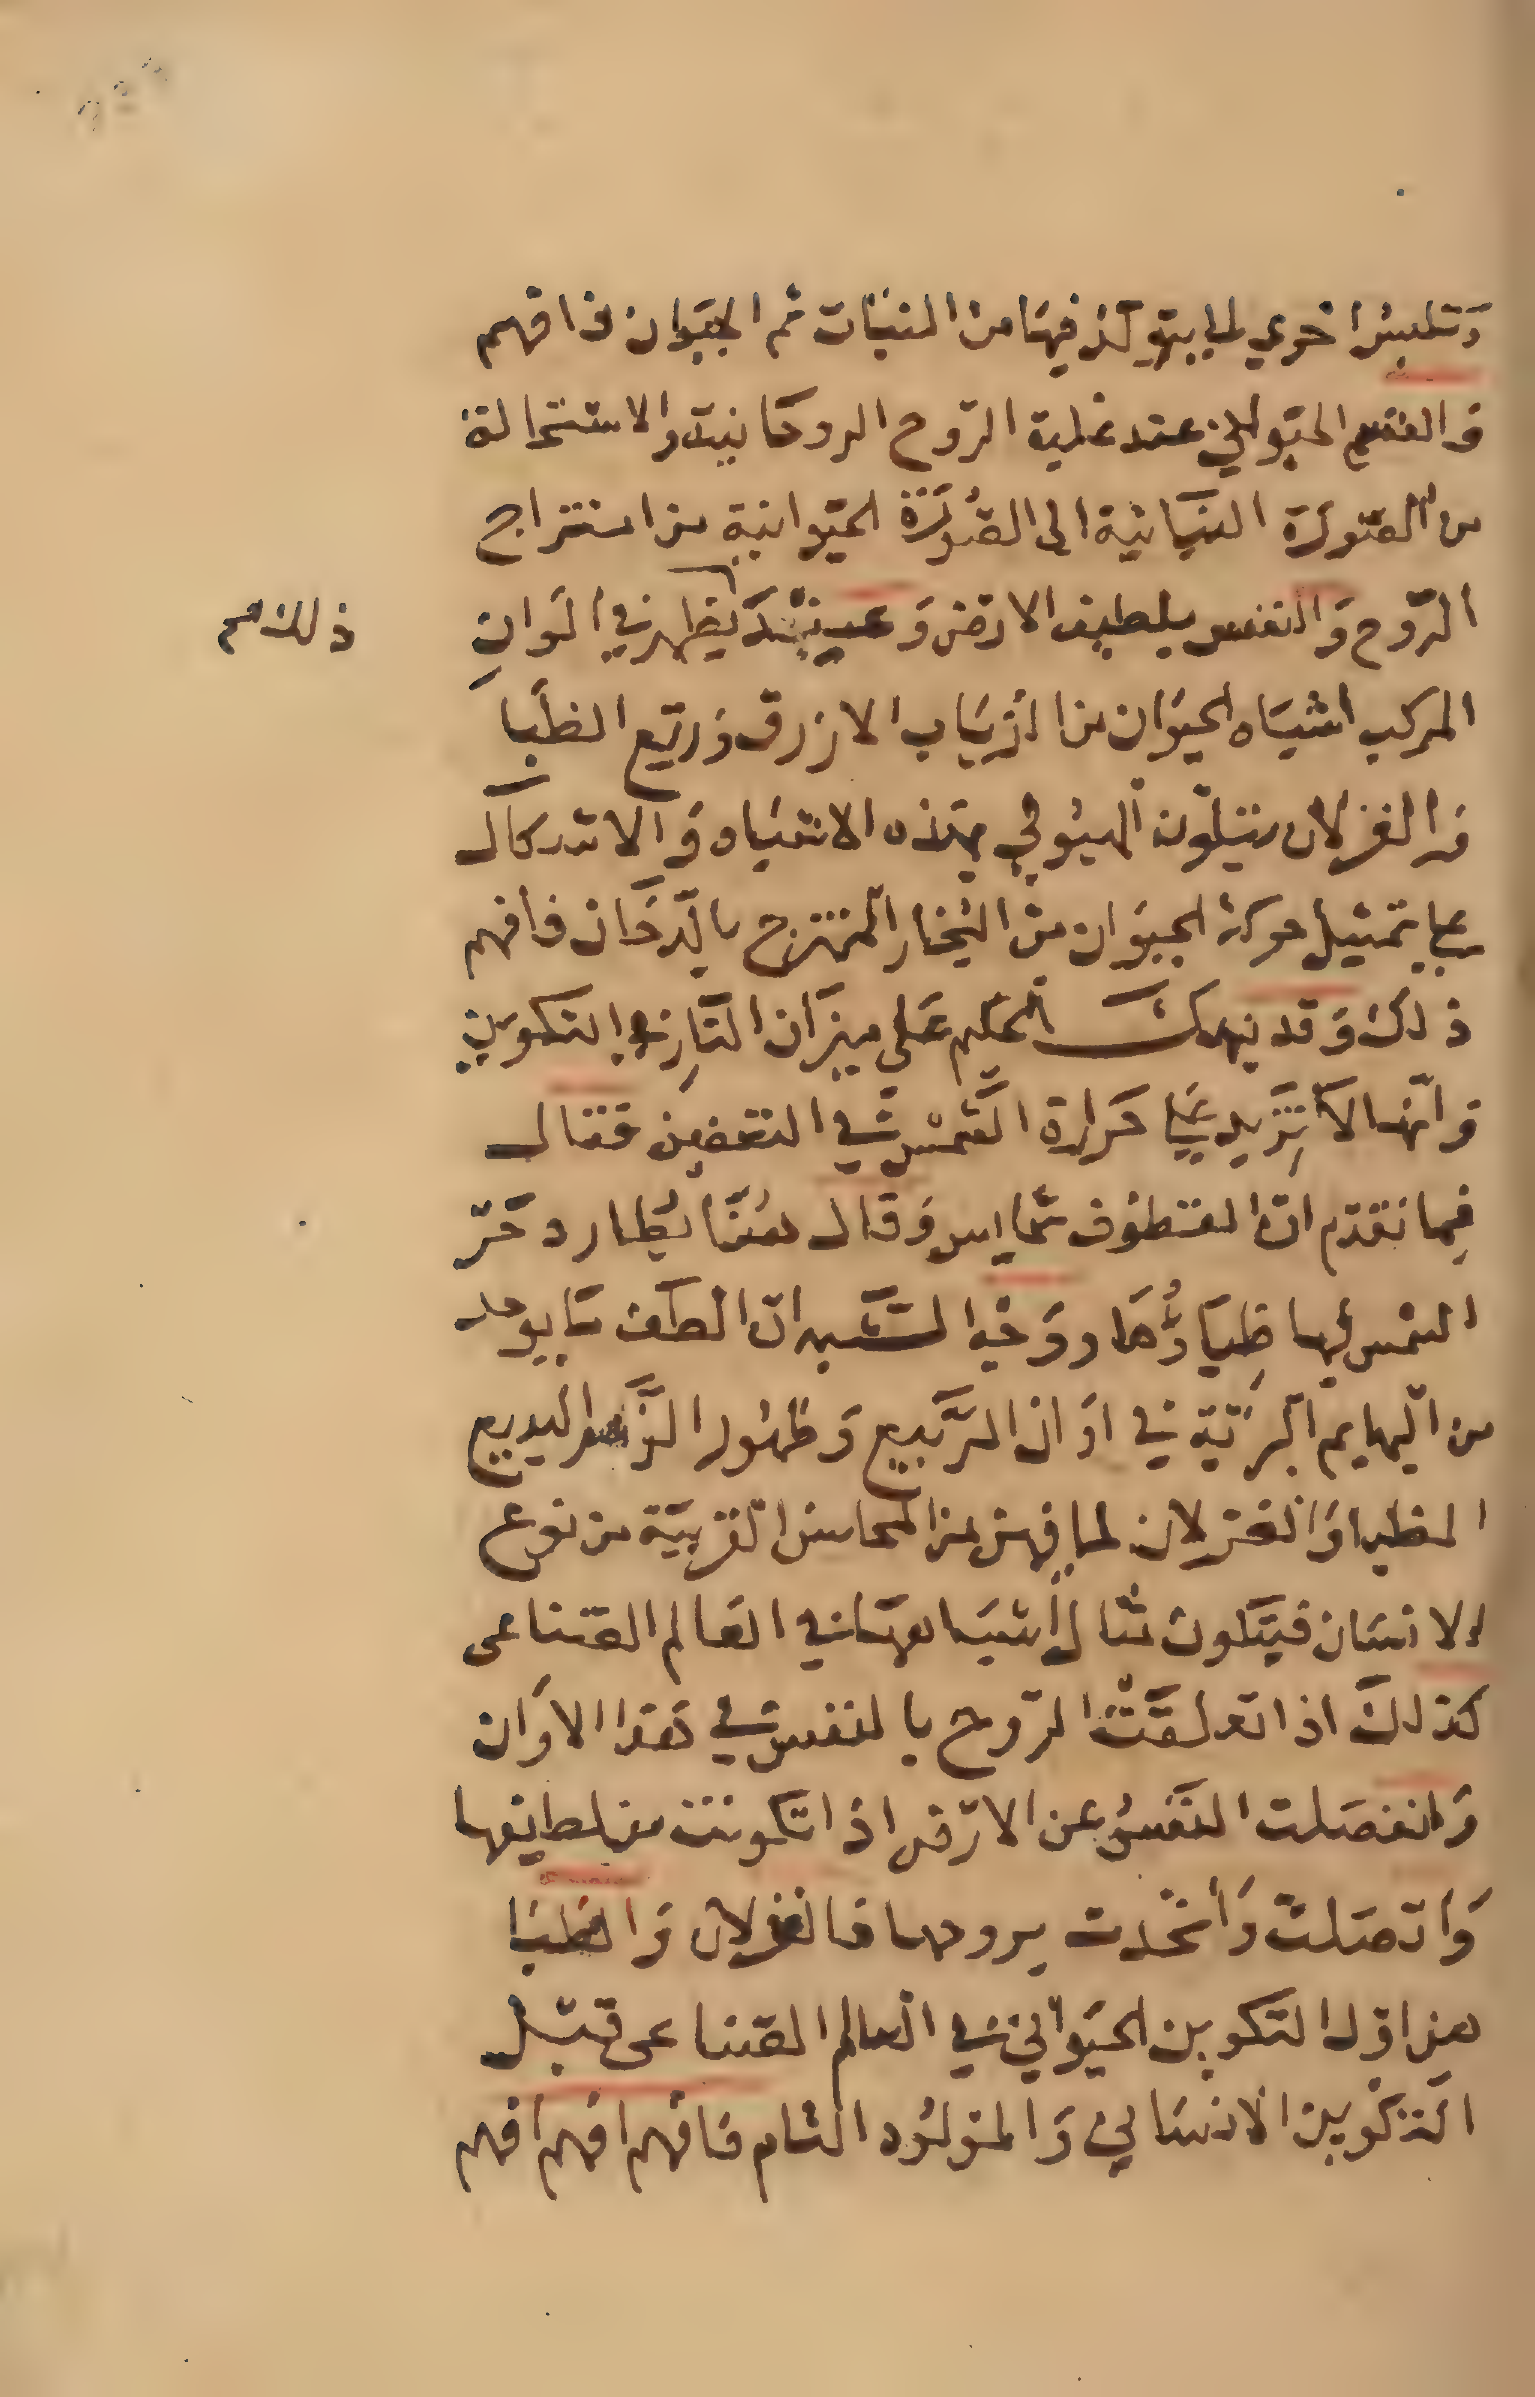 وتلبس اخري لما يتولد فيها من النبات ثم الحيوان فافهم
والقسم الحيواني عند غلبة الروح الروحانية والاستحالة
من الصورة النباتية الى الصورة الحيوانية من امتزاج
الروح والنفس بلطيف الارض وعند يظهر في الوان
ذلك
المركب اشباه الحيوان من الذباب الازرق ورتع الظبا
والغزلان يتلون الهيولي بهذه الاشباه والاشكال
علي تمثيل حركة الحيوان من البخار الممتزج بالدخان فافهم
ذلك وقد نبهك الحكيم علي ميزان النار في التكوين
وانها لا تزيد علي حرارة الشمس في التعفين فقال
فيما تقدم ان القطوف شمايس وقال هنا يطارد حر
الشمس فيها ظباؤها ووجه الشبه ان الطف ما يوجد
من البهايم البرية في اوان الربيع وظهور الزهر البديع
الظباء والغزلان لما فيهن من المحاسن القريبة من نوع
الانسان فيكون مثال اشباهها في العالم الصناعى
كذلك اذا تعلقت الروح بالنفس في هذا الاوان
وانفصلت النفس عن الارض اذا تكونت من لطايفها
واتصلت واتحدت بروحها فالغزلان والظبا
هن اول التكوين الحيواني في العالم الصناعى قبل
التكوين الانساني والمولود التام فافهم افهم افهم